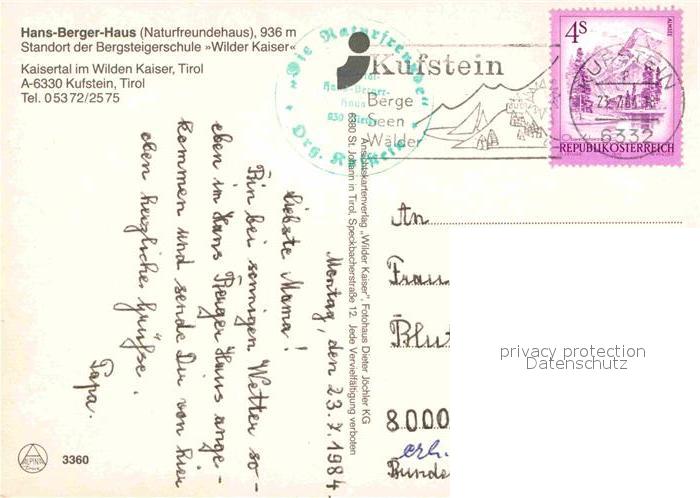 Hans-Berger-Haus (Naturfreundehaus), 936 m
Standort der Bergsteigerschule »Wilder Kaiser«
Kaisertal im Wilden Kaiser, Tirol
A-6330 Kufstein, Tirol
Tel. 05372/2575
"Die Naturfreunde"
Hans-Berger-
Haus
Kufstein
Berge
Seen
Wälder
KUFSTEIN
6332
4S
ALMSEE
REPUBLIK ÖSTERREICH
Ansichtskartenverlag „Wilder Kaiser", Fotohaus Dieter Jöchler KG
6380 St. Johann in Tirol, Speckbacherstraße 12. Jede Vervielfältigung verboten
Montag, den 23.7.1984.
liebste Mama!
Bin bei sonnigen Wetter so-
eben im Hans Berger Haus ange-
kommen und sende Dir von hier
oben herzliche Grüße.
Papa.
An
Frau
Blut
8000
erh.
Bunde
privacy protection
Datenschutz
ALPINA
3360